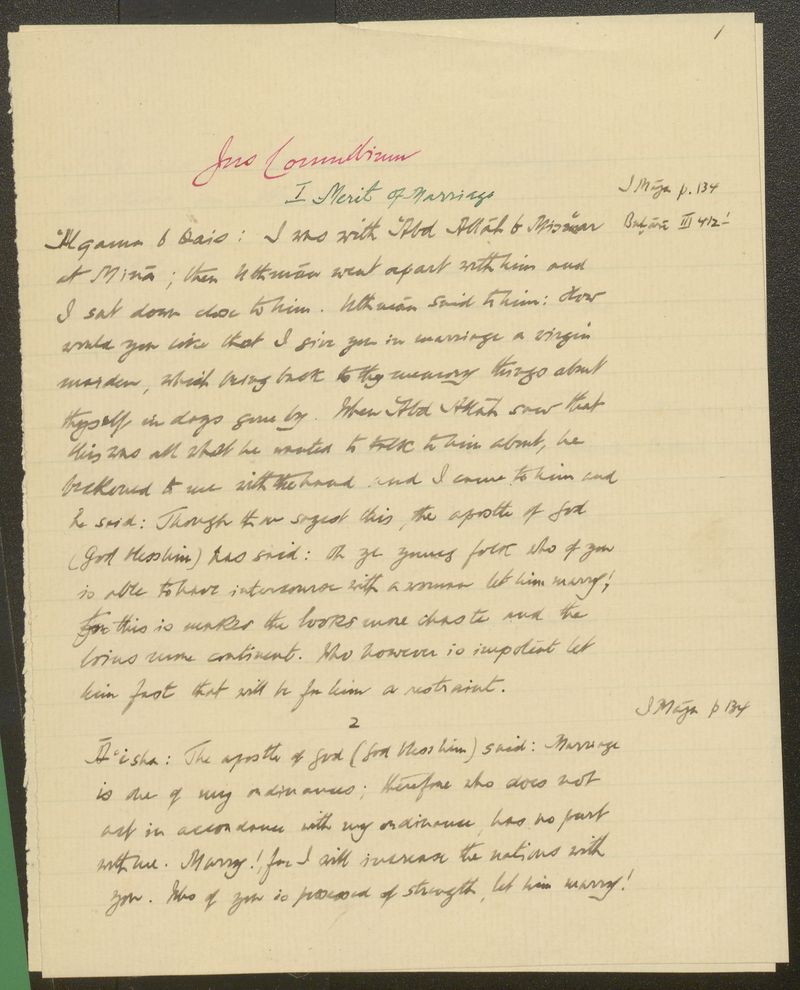 1
Jus Connubium
I Merit of Marriage
I Māja p. 134
Buḫārī III 412!
ʿAlqama b Qais: I was with ʿAbd Allāh b
at Minā; then Uthmān went apart with him and
I sat down close to him. Uthmān said to him: How
would you like that I give you in marriage a virgin
maiden, which bring back to thy memory things about
thyself in days gone by. When ʿAbd Allāh saw that
this was all what he wanted to talk to him about, he
beckoned to me with the hand and I came to him and
he said: Though thou sayest this, the apostle of God
(God bless him) has said: Oh ye young folk who of you
is able to have intercourse with a woman let him marry!,
for this is makes the looks more chaste and the
loins more continent. Who however is impotent let
him fast that will be for him a restraint.
2
I Māja p 134
Āʿisha: The apostle of God (God bless him) said: Marriage
is one of my ordinances; therefore who does not
act in accordance with my ordinance, has no part
with me. Marry!, for I will increase the nations with
you. Who of you is possessed of strength, let him marry!